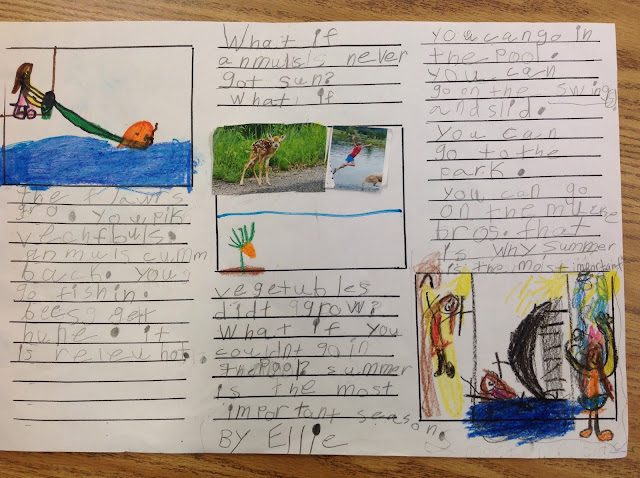 the flawrs
gro. you pik
veghtbuls.
anmuls cumm
back. you
go fishin.
bees get
hune. it
is reley hot.
What if
anmuls never
got sun?
What if
vegetubles
didt grow?
What if you
couldnt go in
the pool summer
is the most
important season.
BY Ellie
you can go in
the pool.
you can
go on the swing
and slid.
you can
go to the
park.
you can go
on the mukee
bros. that
is why summer
is the most important